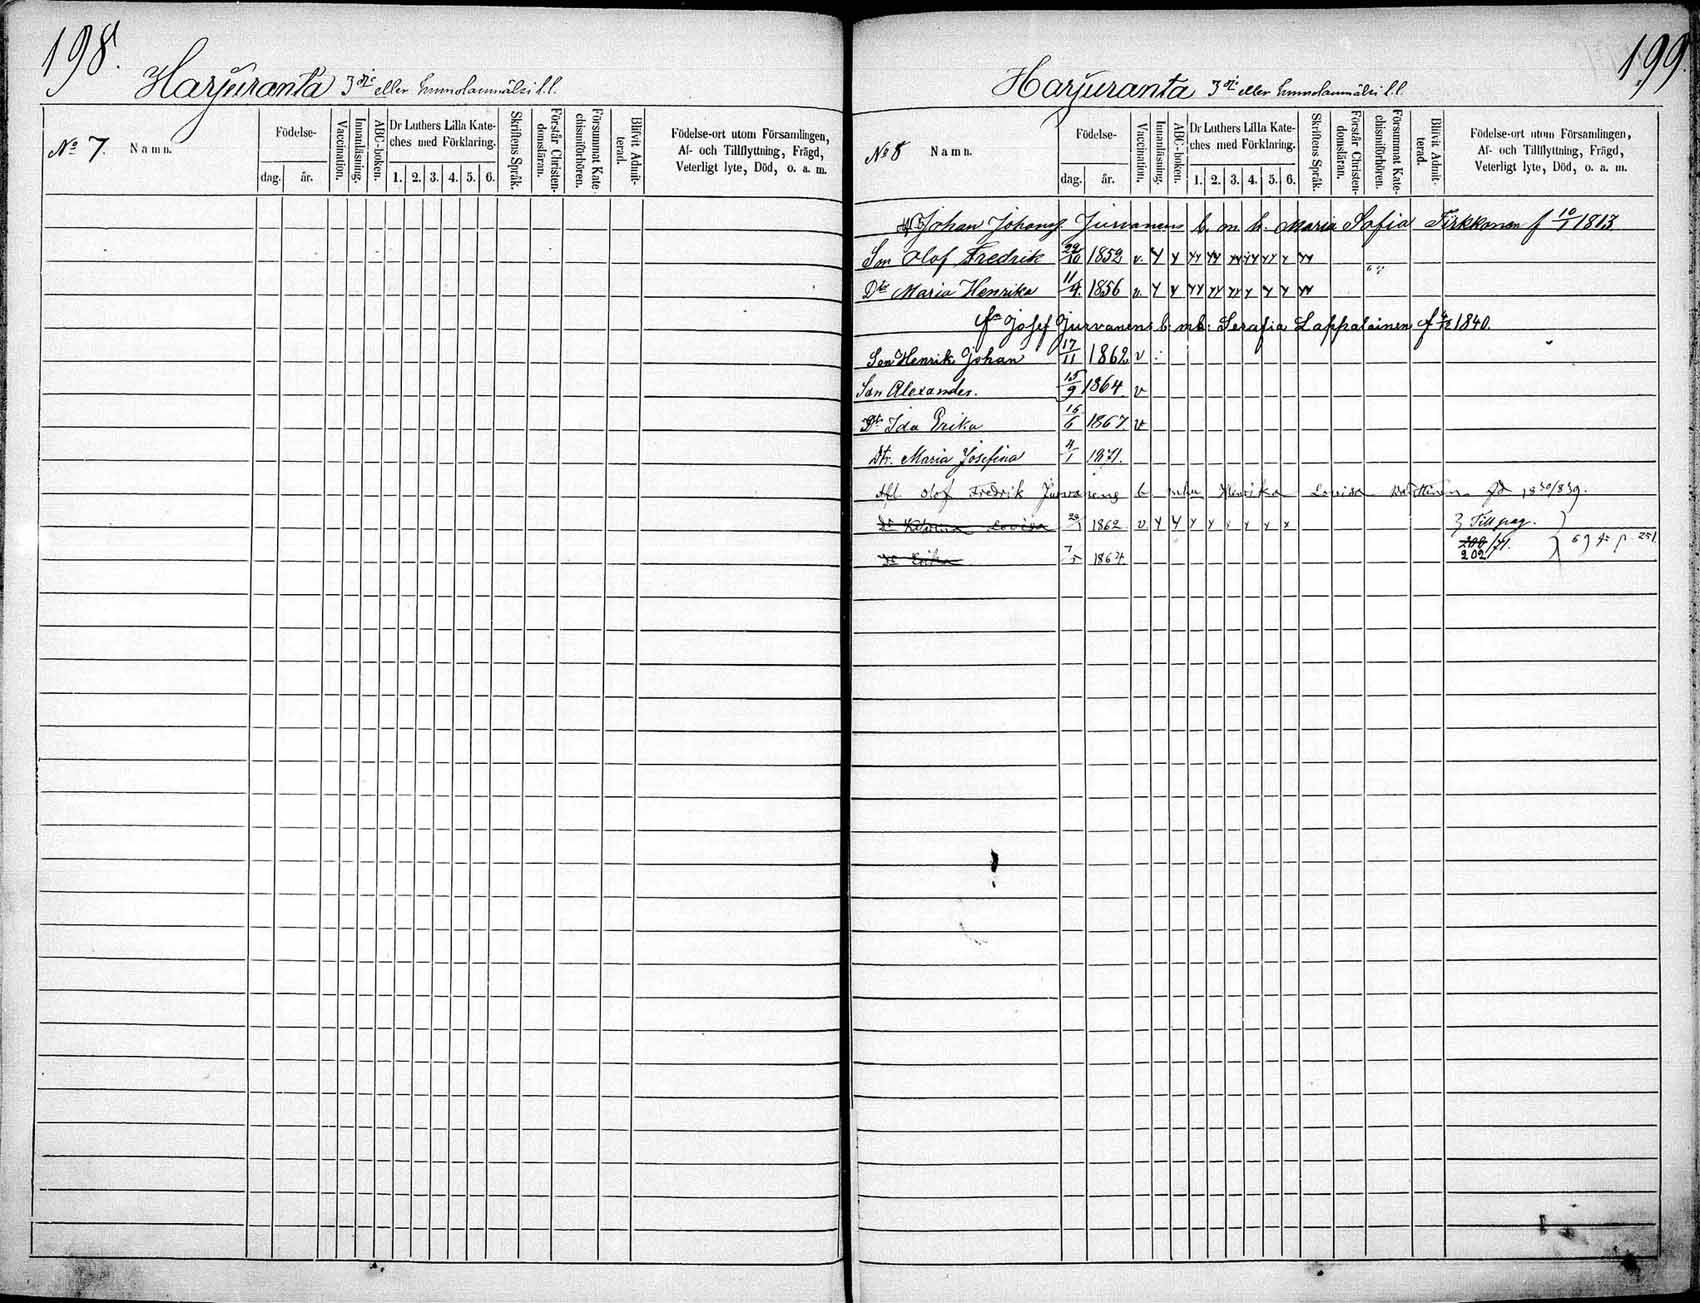 198.
Harjuranta 3 eller
No 7.
Namn.
Födelse-
dag. år.
Vaccination.
Innanläsning.
ABC-boken.
Dr Luthers Lilla Kate-
ches med Förklaring.
1. 2. 3. 4. 5. 6.
Skriftens Språk.
Förstår Christen-
domsläran.
Försummat Kate-
chismiförhören.
Blifvit Admit-
terad.
Födelse-ort utom Församlingen,
Af- och Tillflyttning, Frägd,
Veterligt lyte, Död, o. a. m.
199.
Harjuranta 3 eller
No 8
Namn.
Födelse-
dag. år.
Vaccination.
Innanläsning.
ABC-boken.
Dr Luthers Lilla Kate-
ches med Förklaring.
1. 2. 3. 4. 5. 6.
Skriftens Språk.
Förstår Christen-
domsläran.
Försummat Kate-
chismiförhören.
Blifvit Admit-
terad.
Födelse-ort utom Församlingen,
Af- och Tillflyttning, Frägd,
Veterligt lyte, Död, o. a. m.
Johan Johansf. Jurvanens b. m. h. Maria Sofia Tirkkonen f 10/1 1813
Son Olof Fredrik 22/10 1852 v.
Dtr Maria Henrika 11/4 1856 v.
Josef Jurvanens b. mh. Serafia Lappalainen f 1840.
Son Henrik Johan 17/11 1862 v
Son Alexander. 15/9 1864 v
Dtr Ida Erika 16/6 1867 v
Dtr. Maria Josefina 4/1 1871.
Olof Fredrik Jurvanens b mhu Henrika Lovisa
Lovisa 1862 v
Erika 7/5 1864.
Till pag.
200/71.
202